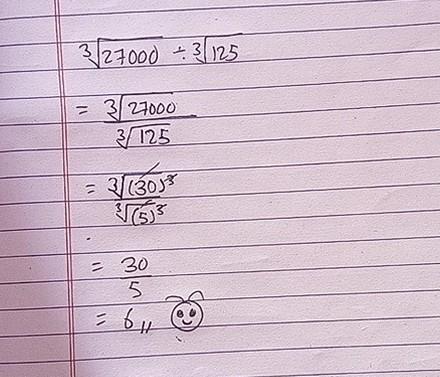 ∛27000 ÷ ∛125
= ∛27000 / ∛125
= ∛(30)³ / ∛(5)³
= 30 / 5
= 6,,